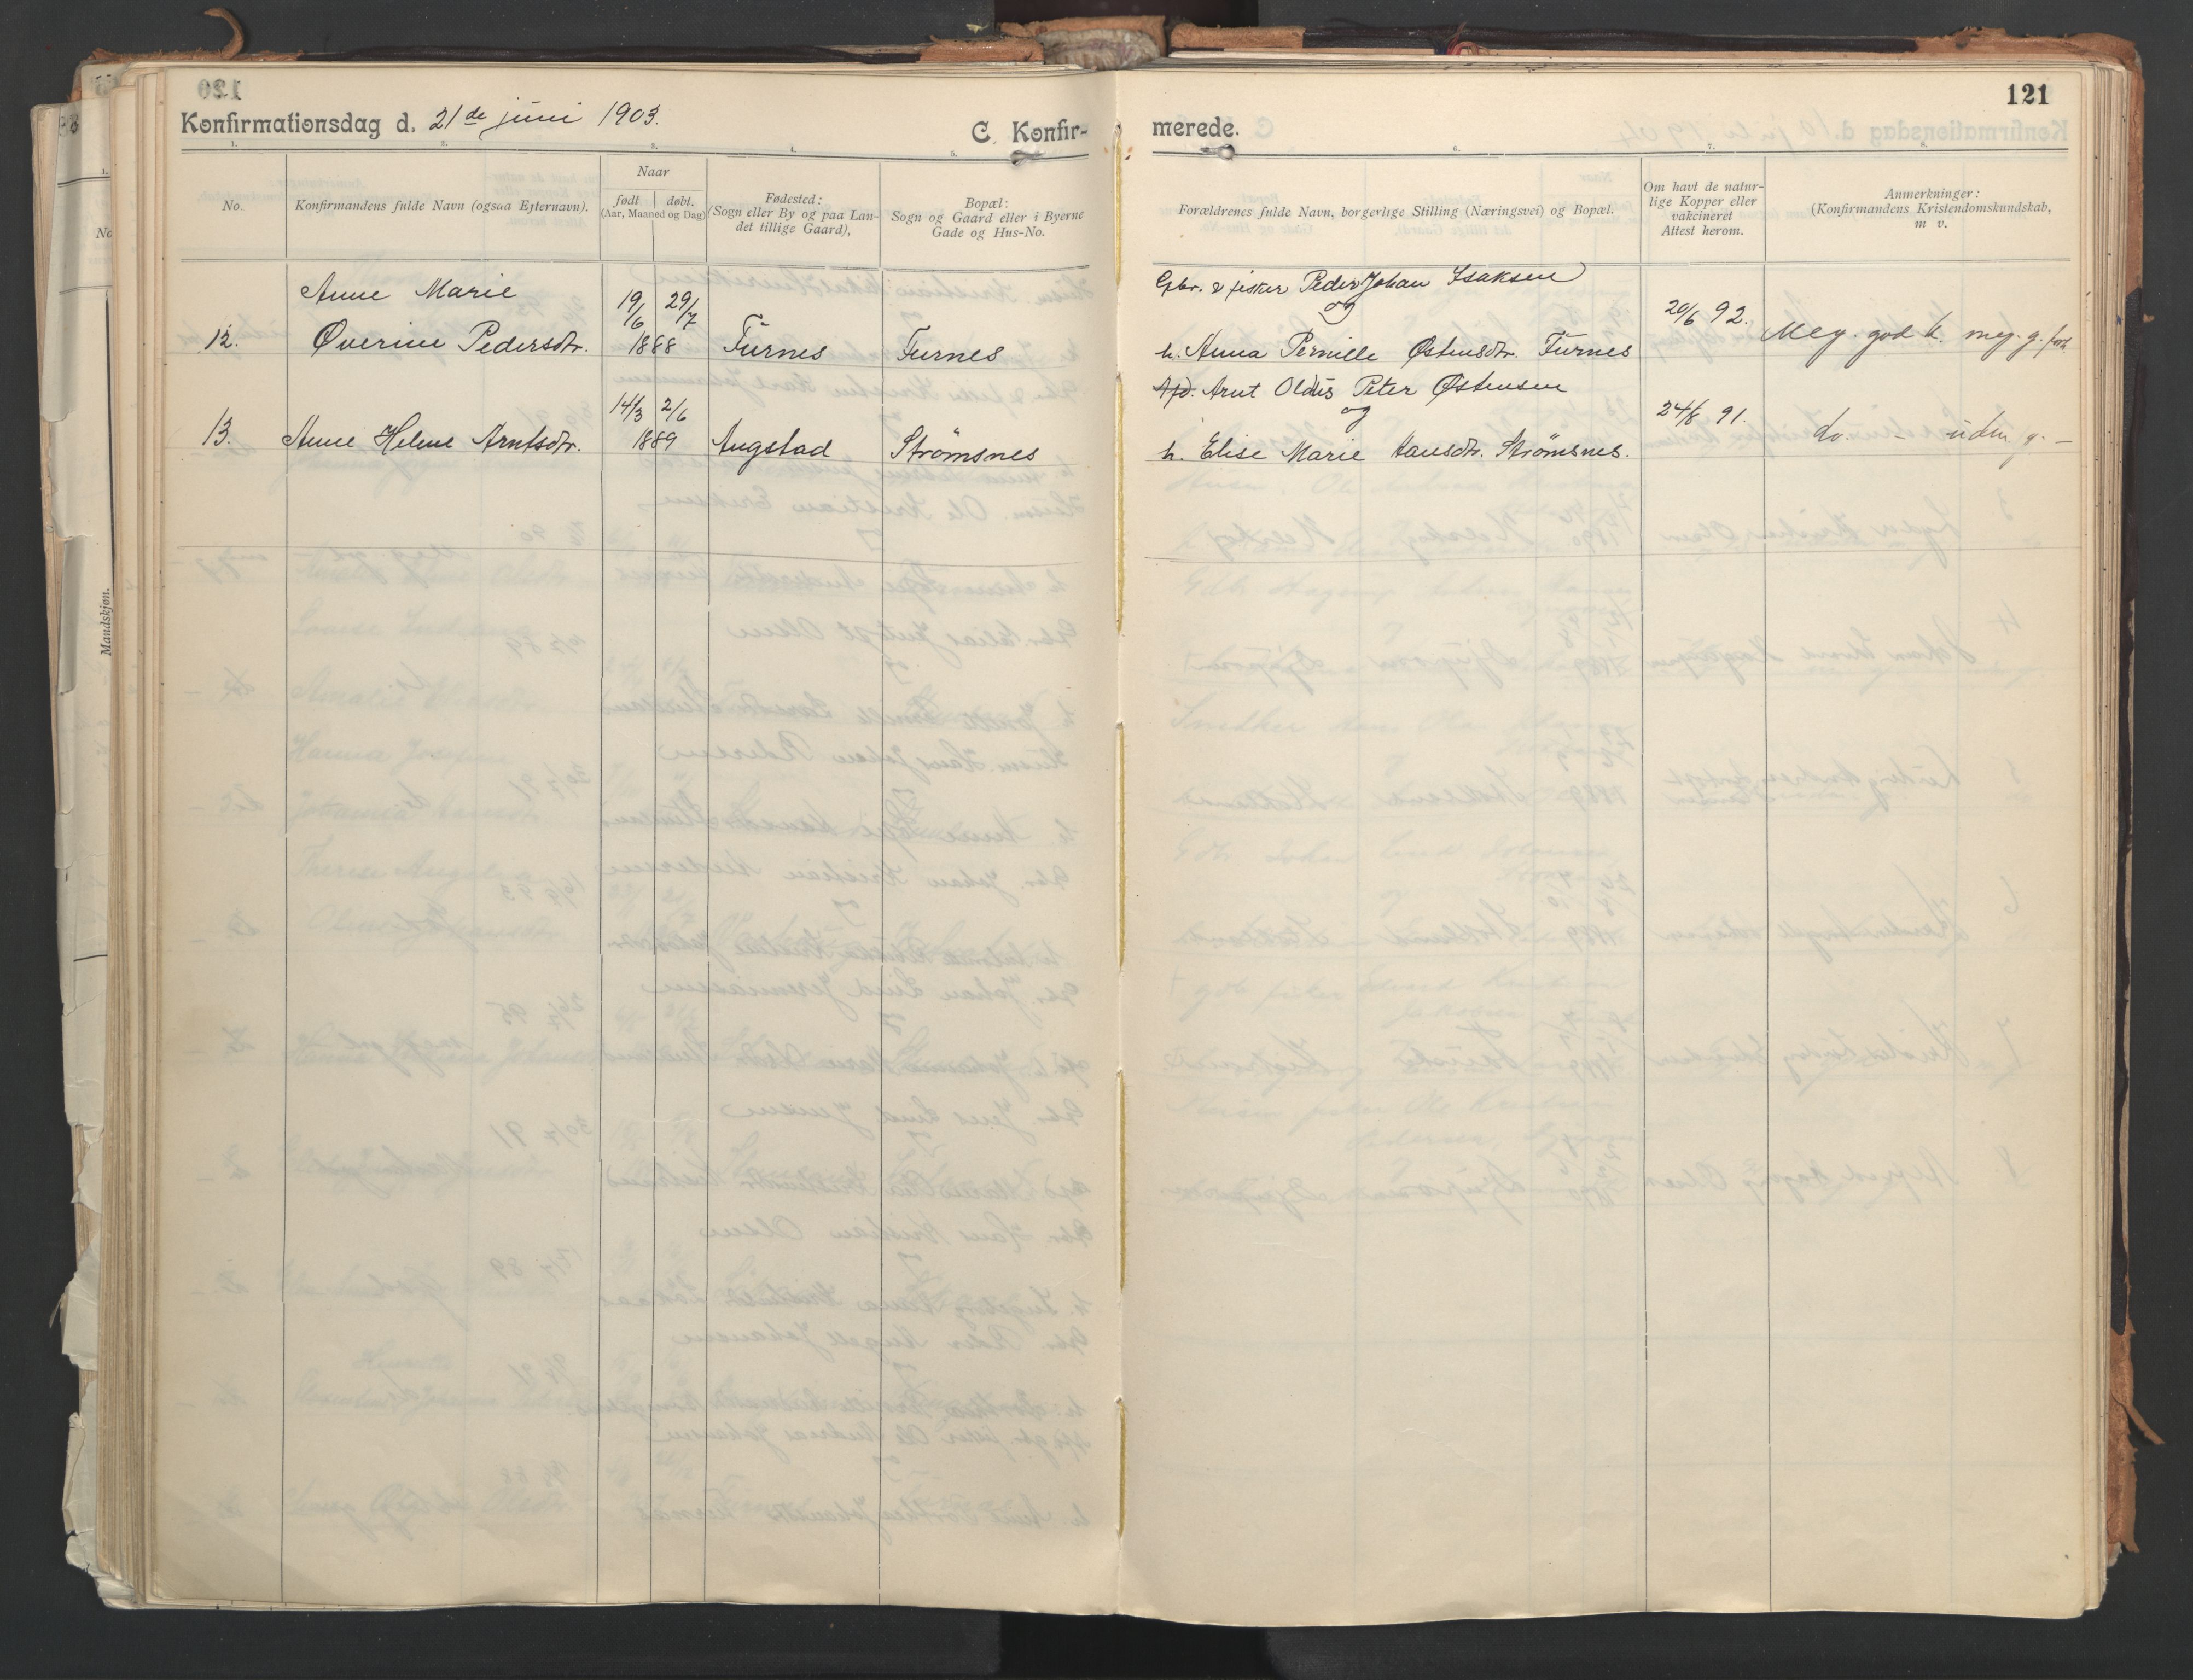 Konfirmationsdag d. 21de juni 1903.
C. Konfir-
1. 2. 3. 4. 5.
No.
Konfirmandens fulde Navn (ogsaa Efternavn).
Naar
født døbt.
(Aar, Maaned og Dag)
Fødested:
(Sogn eller By og paa Lan-
det tillige Gaard).
Bopæl:
Sogn og Gaard eller i Byerne
Gade og Hus-No.
Anne Marie
12. Øverine Pedersdtr. 19/6 29/7 1888 Furnes Furnes
13. Anne Helene Arntsdtr. 14/3 2/6 1889 Angstad Strömsnes
121
merede.
6. 7. 8.
Forældrenes fulde Navn, borgerlige Stilling (Næringsvei) og Bopæl.
Om havt de natur-
lige Kopper eller
vakcineret
Attest herom.
Anmerkninger:
(Konfirmandens Kristendomskundskab,
m v.
Gbr. & fisker Peder Johan Isaksen
og
h. Anna Pernille Østensdtr. Furnes
20/6 92.
Meg. god k. meg. g. forh.
Afd. Arnt Oldus Peter Østensen
og
h. Elise Marie Hansdtr. Strömsnes.
24/8 91.
do. –
No
Mandskjøn.